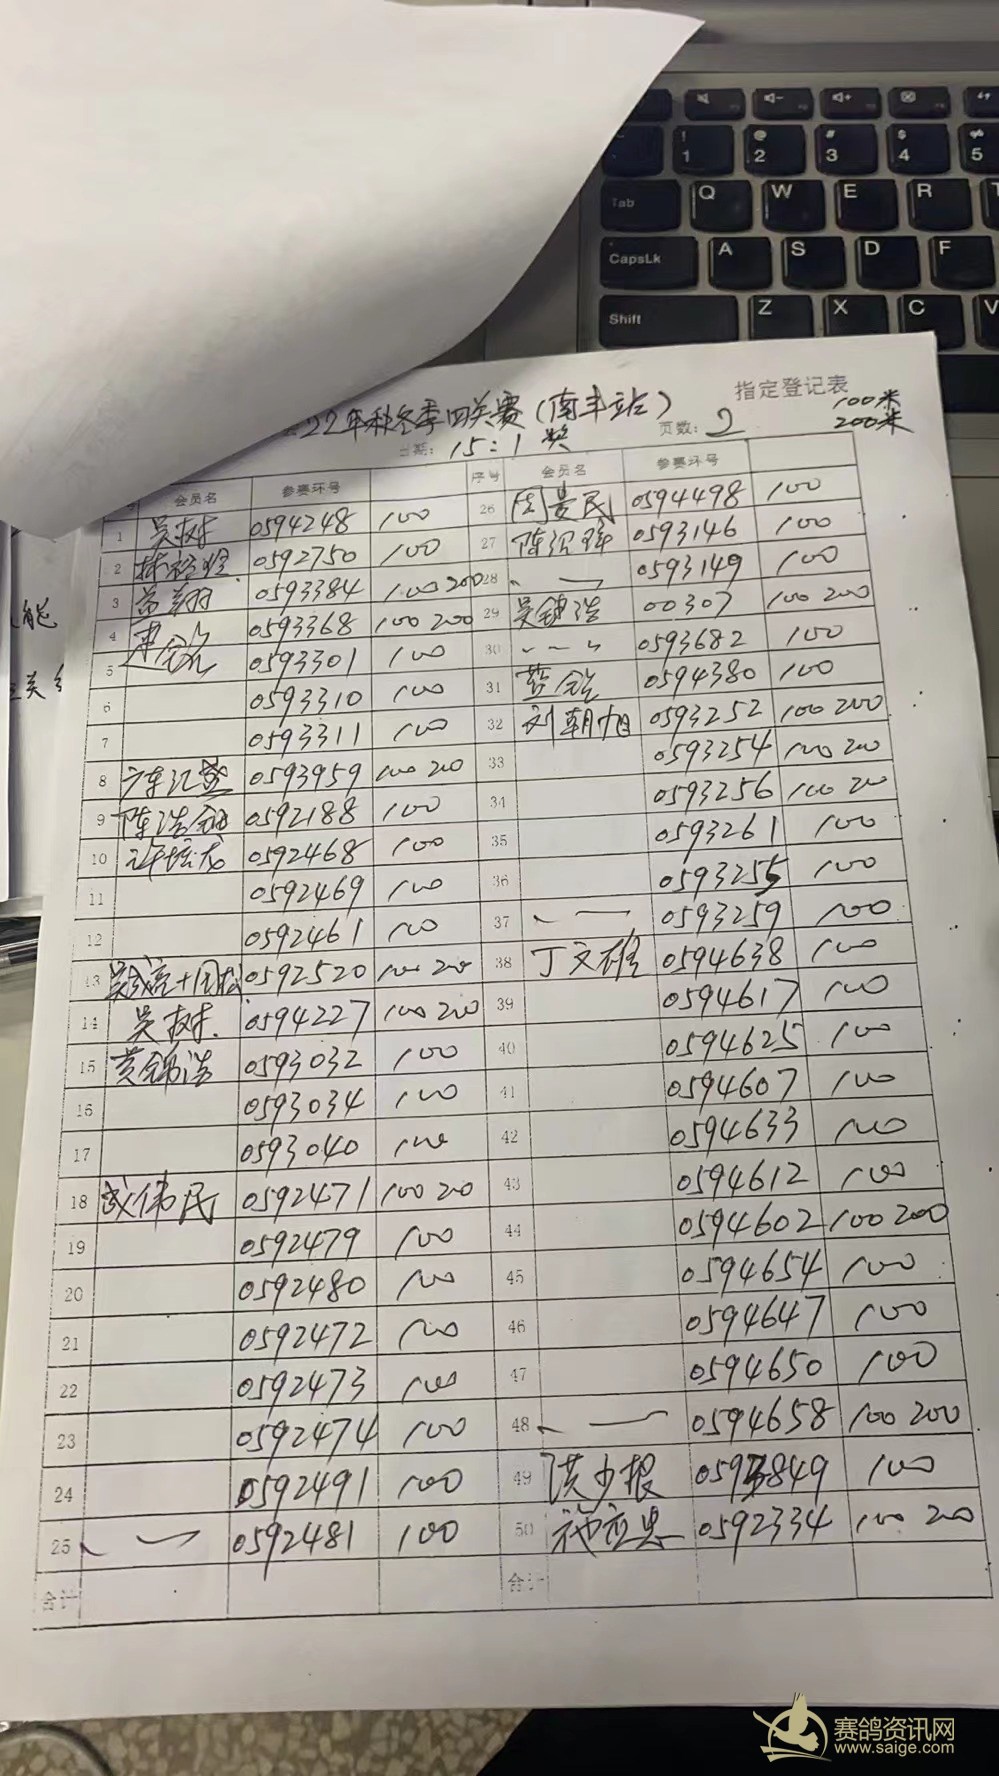 22年秋冬季四关赛（南丰站）
指定登记表
100米
200米
日期： 15:1 奖
页数：2
会员名 参赛环号 序号 会员名 参赛环号
1 吴树 0594248 100
2 0592750 100
3 0593384 100 200
4 0593368 100 200
5 0593301 100
6 0593310 100
7 0593311 100
8 0593959 100 200
9 陈浩 0592188 100
10 0592468 100
11 0592469 100
12 0592461 100
13 0592520 100 200
14 吴树 0594227 100 200
15 黄锦浩 0593032 100
16 0593034 100
17 0593040 100
18 伟民 0592471 100 200
19 0592479 100
20 0592480 100
21 0592472 100
22 0592473 100
23 0592474 100
24 0592491 100
25 0592481 100
合计
26 周景民 0594498 100
27 陈 0593146 100
28 0593149 100
29 吴 浩 00307 100 200
30 0593682 100
31 0594380 100
32 刘朝旭 0593252 100 200
33 0593254 100 200
34 0593256 100 200
35 0593261 100
36 0593255 100
37 0593259 100
38 丁文雄 0594638 100
39 0594617 100
40 0594625 100
41 0594607 100
42 0594633 100
43 0594612 100
44 0594602 100 200
45 0594654 100
46 0594647 100
47 0594650 100
48 0594658 100 200
49 洪少根 0593849 100
50 0592334 100 200
合计
能
关
~ ! @ # $ ≠
1 2 3 4 5
Tab Q W E R
CapsLk A S D F
Shift Z X C V
赛鸽资讯网
www.saige.com